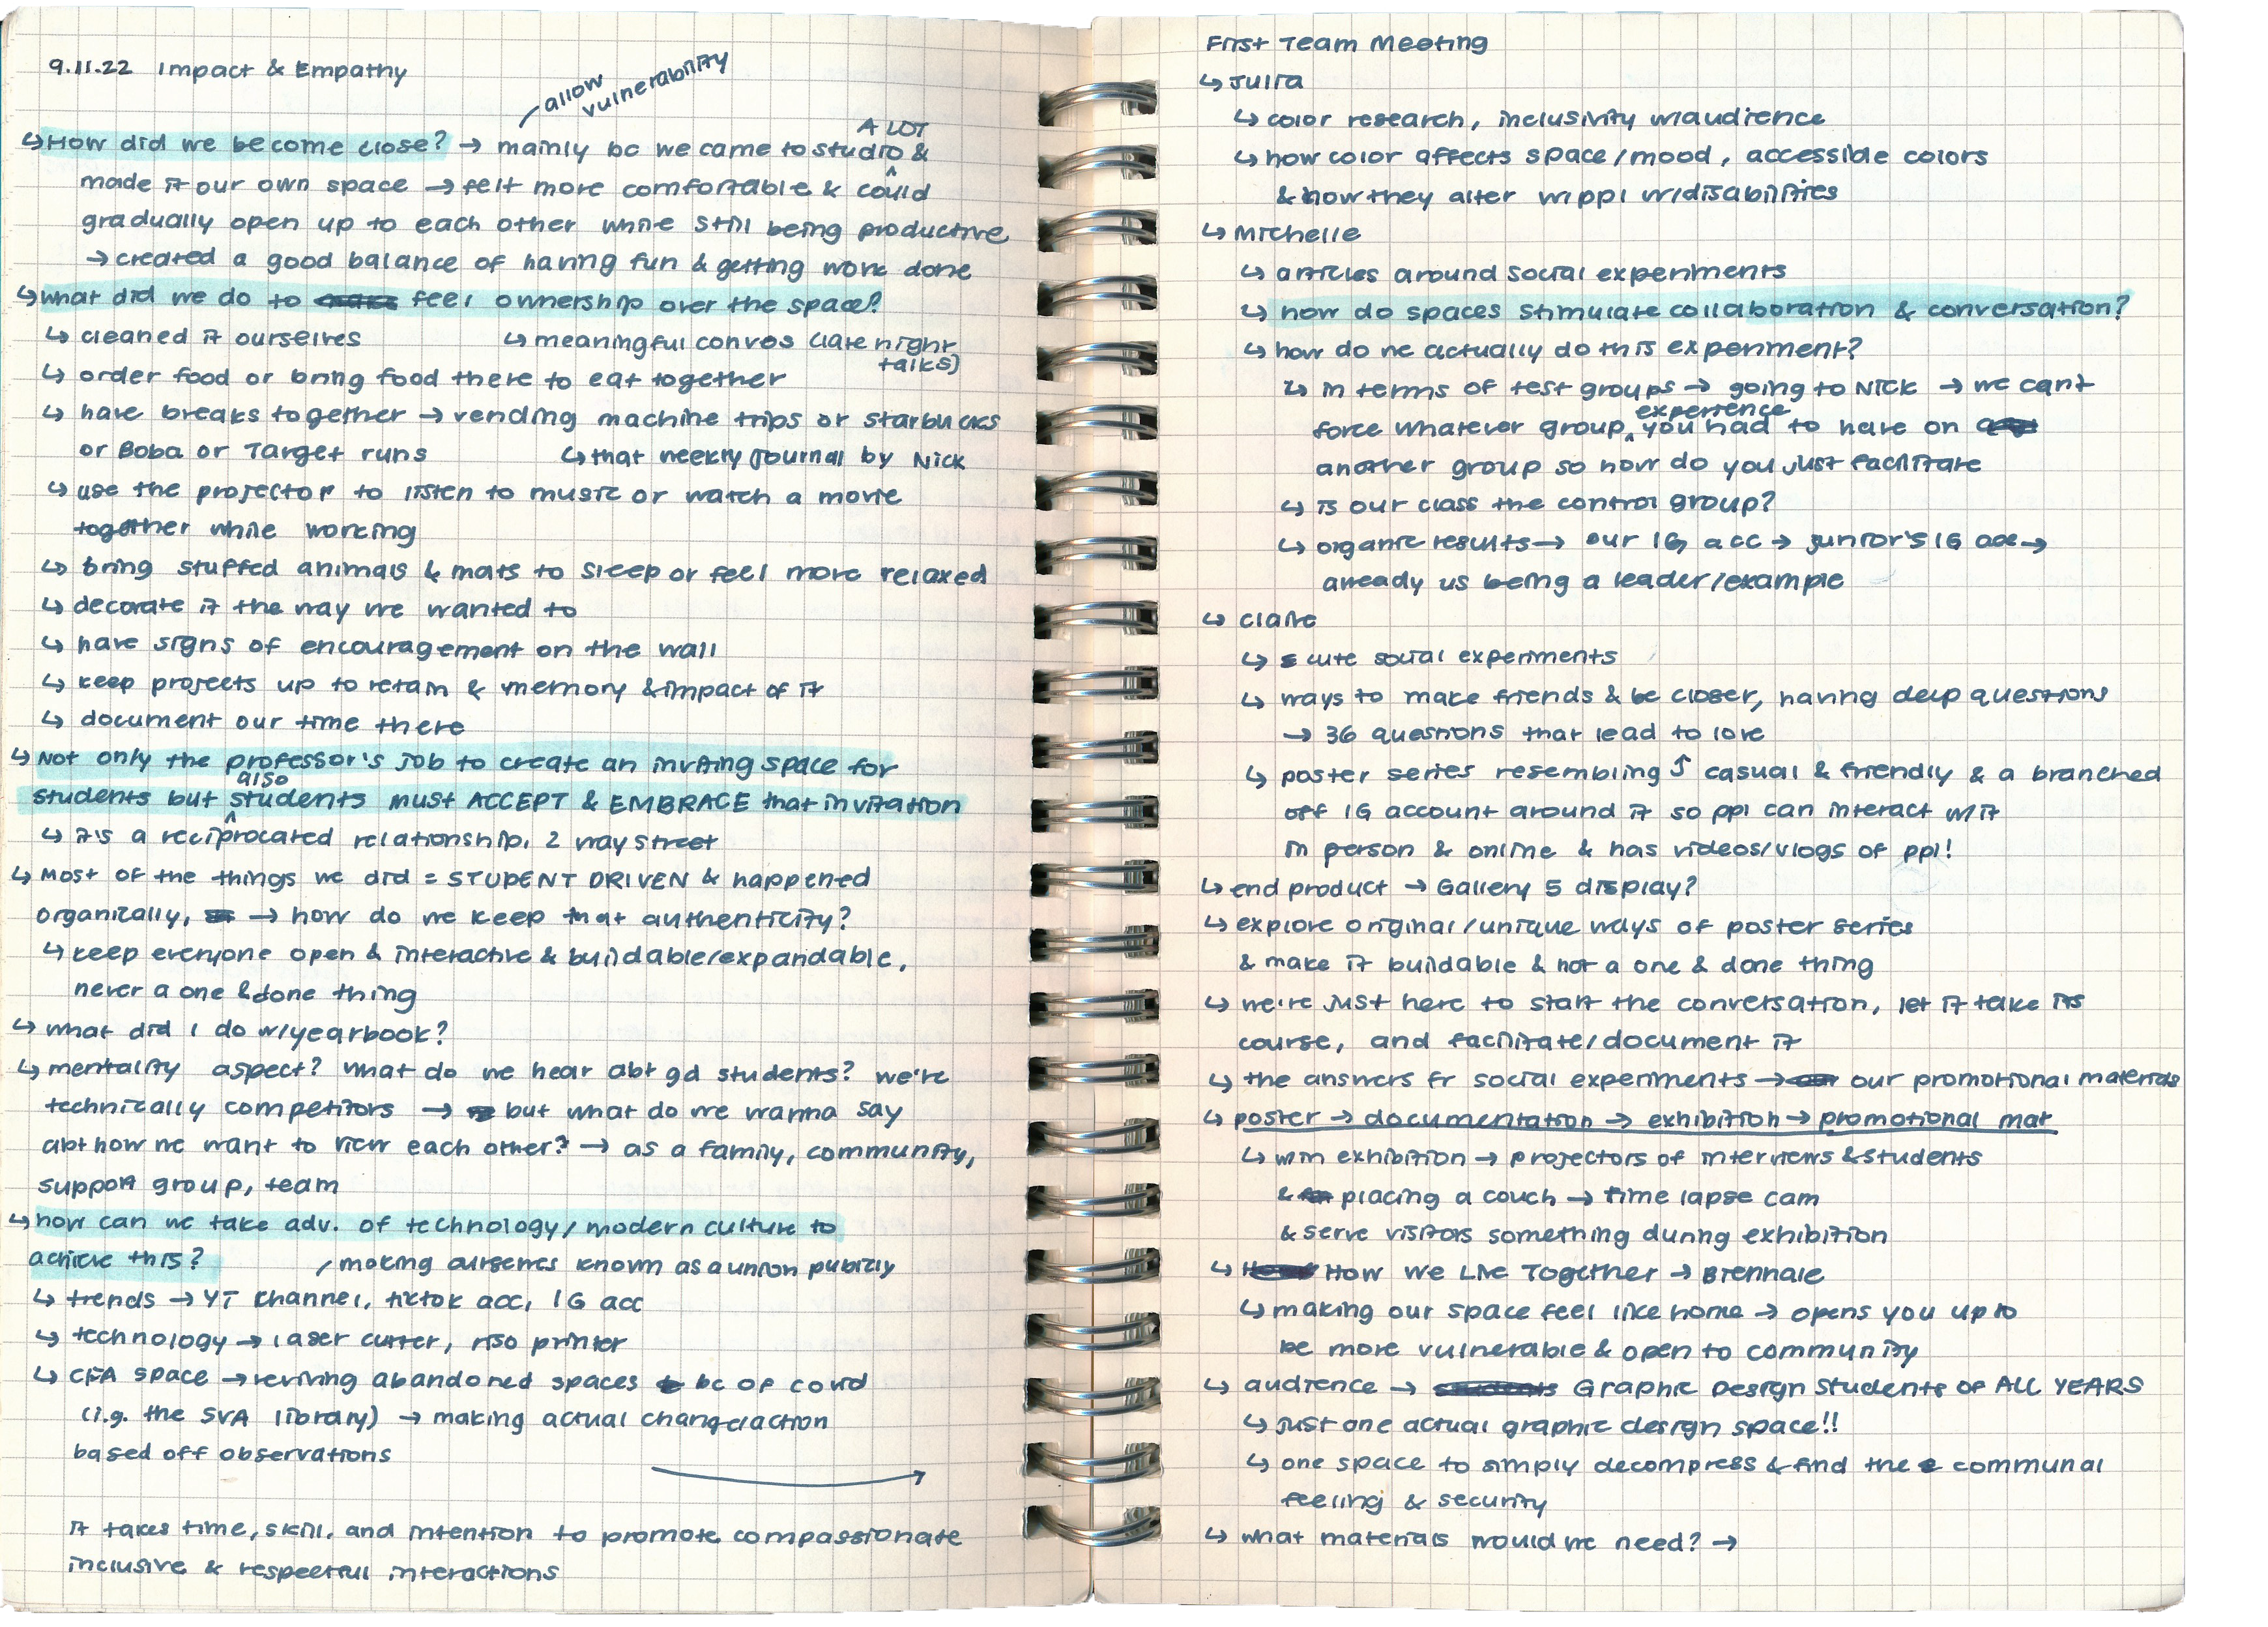 9.11.22 Impact & Empathy
allow
vulnerability
A LOT
↳ How did we become close? → mainly bc we came to studio ^ &
made it our own space → felt more comfortable & could
gradually open up to each other while still being productive
→ created a good balance of having fun & getting work done
↳ what did we do to feel ownership over the space?
↳ cleaned it ourselves
↳ meaningful convos (late night
talks)
↳ order food or bring food there to eat together
↳ have breaks together → vending machine trips or starbucks
or Boba or Target runs
↳ that weekly journal by Nick
↳ use the projector to listen to music or watch a movie
together while working
↳ bring stuffed animals & mats to sleep or feel more relaxed
↳ decorate it the way we wanted to
↳ have signs of encouragement on the wall
↳ keep projects up to retain & memory & impact of it
↳ document our time there
↳ Not only the professor's job to create an inviting space for
also
students but ^ students must ACCEPT & EMBRACE that invitation
↳ it's a reciprocated relationship, 2 way street
↳ most of the things we did = STUDENT DRIVEN & happened
organically, → how do we keep that authenticity?
↳ keep everyone open & interactive & buildable/expandable,
never a one & done thing
↳ what did I do w/yearbook?
↳ mentality aspect? what do we hear abt gd students? we're
technically competitors → but what do we wanna say
abt how we want to view each other? → as a family, community,
support group, team
↳ how can we take adv. of technology/modern culture to
achieve this?
making ourselves known as a union publicly
↳ trends → YT channel, tiktok acc, IG acc
↳ technology → laser cutter, riso printer
↳ CFA space → reviving abandoned spaces bc of covid
(i.g. the SVA library) → making actual change/action
based off observations
→
it takes time, skill, and intention to promote compassionate
inclusive & respectful interactions
First Team Meeting
↳ Julia
↳ color research, inclusivity w/audience
↳ how color affects space/mood, accessible colors
& how they alter w/ppl w/disabilities
↳ Michelle
↳ articles around social experiments
↳ how do spaces stimulate collaboration & conversation?
↳ how do we actually do this experiment?
↳ in terms of test groups → going to Nick → we can't
experience
force whatever group ^ you had to have on
another group so how do you just facilitate
↳ is our class the control group?
↳ organic results → our IG acc → junior's IG acc →
already us being a leader/example
↳ Claire
↳ cute social experiments
↳ ways to make friends & be closer, having deep questions
→ 36 questions that lead to love
↳ poster series resembling ⤴ casual & friendly & a branched
off IG account around it so ppl can interact w/it
in person & online & has videos/vlogs of ppl!
↳ end product → Gallery 5 display?
↳ explore original/unique ways of poster series
& make it buildable & not a one & done thing
↳ we're just here to start the conversation, let it take its
course, and facilitate/document it
↳ the answers fr social experiments → our promotional materials
↳ poster → documentation → exhibition → promotional mat
↳ w/in exhibition → projectors of interviews & students
& placing a couch → time lapse cam
& serve visitors something during exhibition
↳ How We Live Together → Biennale
↳ making our space feel like home → opens you up to
be more vulnerable & open to community
↳ audience → Graphic Design Students of ALL YEARS
↳ just one actual graphic design space!!
↳ one space to simply decompress & find the communal
feeling & security
↳ what materials would we need? →